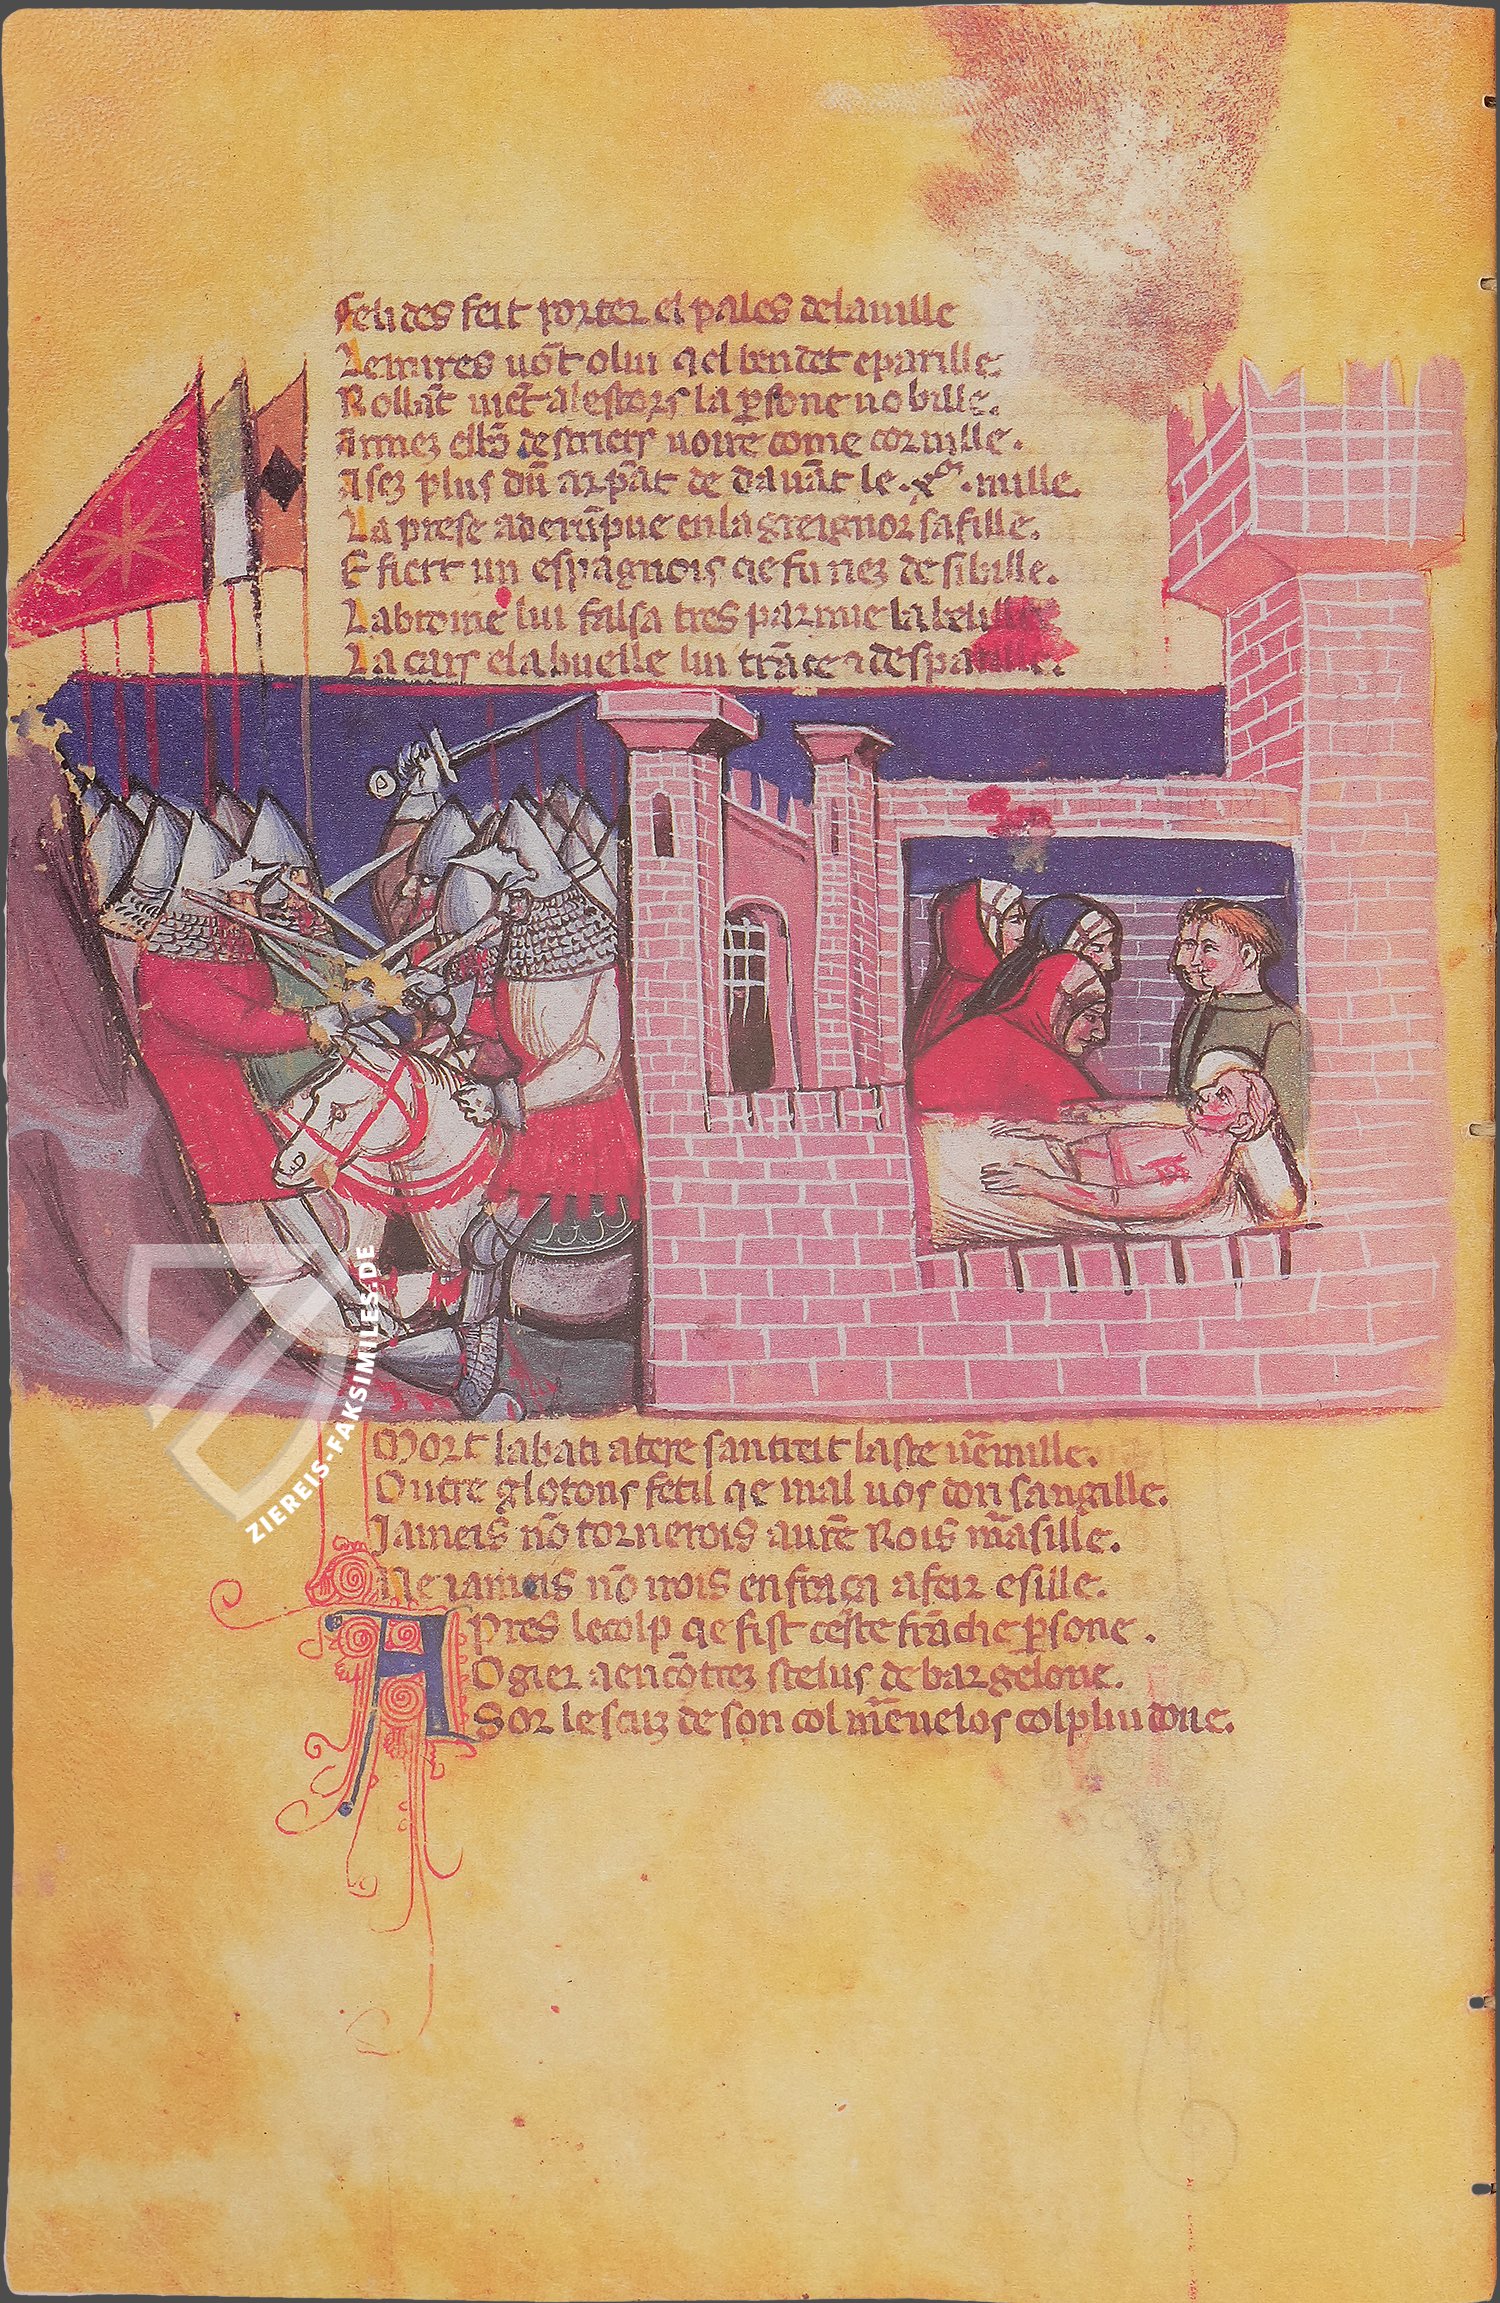 Felides feit porter el pales delauille
Lemires uōt o lui q el ben det eparille.
Rollāt uiēt alestors la ꝑsone nobille.
Armez
destriers noire come cornille.
Asez plus dū arpāt de dauāt le .xͫ. mille.
La prese aderūpue enlagreignor safille.
E fiert un espagnois qe fu nez de sibille.
Labronie lui falsa tres parmie la
La cars elabuelle lui trāce
Mort labati atere
laste
Outre glotons fetil qe mal uos don sangille.
Jameis nō tornerois
Rois māsille.
Ne iameis nō irois enfrāça afeir esille.
Apres lecolp qe fist ceste frāche ꝑsone.
Ogier aencōtrez stelus de bargelone.
Sor lescuz de son col
uelos colp lui done.
ZIEREIS-FAKSIMILES.DE